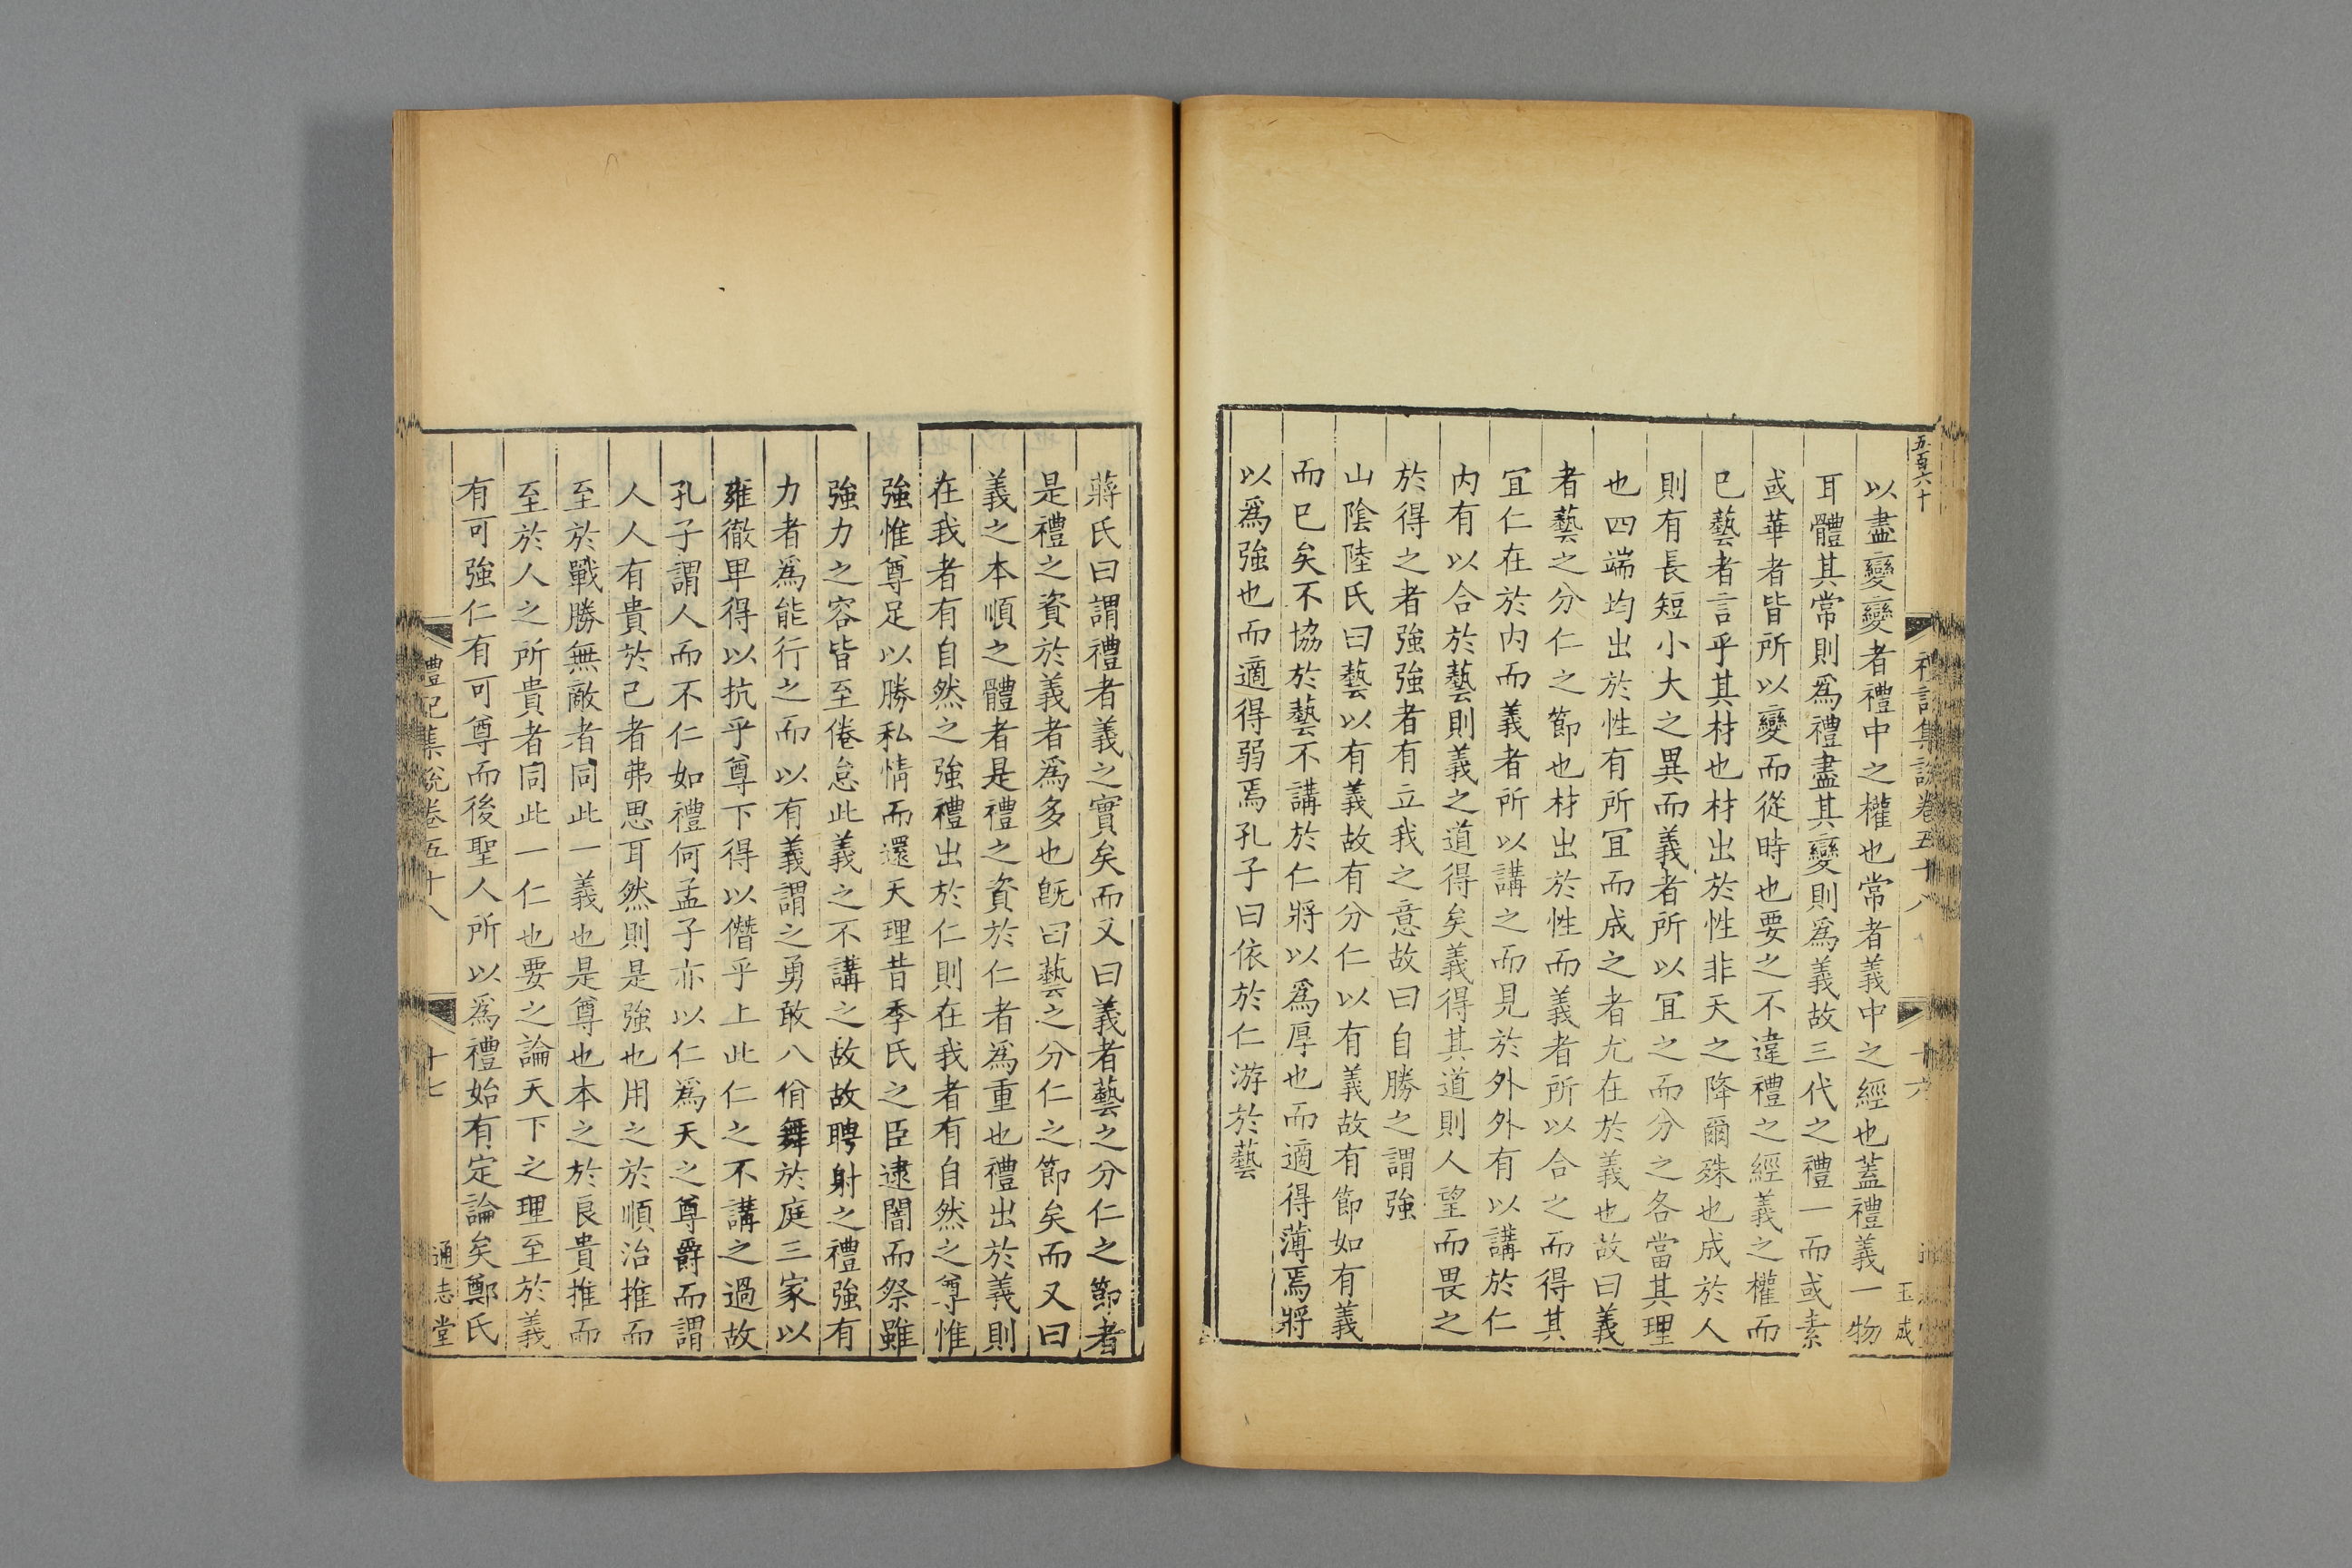 五百六十
以盡變變者禮中之權也常者義中之經也蓋禮義一物
耳體其常則爲禮盡其變則爲義故三代之禮一而或素
或華者皆所以變而從時也要之不違禮之經義之權而
已藝者言乎其材也材出於性非天之降爾殊也成於人
則有長短小大之異而義者所以冝之而分之各當其理
也四端均出於性有所冝而成之者尤在於義也故曰義
者藝之分仁之節也材出於性而義者所以合之而得其
冝仁在於内而義者所以講之而見於外外有以講於仁
内有以合於藝則義之道得矣義得其道則人望而畏之
於得之者強強者有立我之意故曰自勝之謂強
山陰陸氏曰藝以有義故有分仁以有義故有節如有義
而已矣不協於藝不講於仁將以爲厚也而適得薄焉將
以爲強也而適得弱焉孔子曰依於仁游於藝
玉成
蔣氏曰謂禮者義之實矣而又曰義者藝之分仁之節者
是禮之資於義者爲多也旣曰藝之分仁之節矣而又曰
義之本順之體者是禮之資於仁者爲重也禮出於義則
在我者有自然之強禮出於仁則在我者有自然之尊惟
強惟尊足以勝私情而還天理昔季氏之臣逮闇而祭雖
強力之容皆至倦怠此義之不講之故故聘射之禮強有
力者爲能行之而以有義謂之勇敢八佾舞於庭三家以
雍徹卑得以抗乎尊下得以僭乎上此仁之不講之過故
孔子謂人而不仁如禮何孟子亦以仁爲天之尊爵而謂
人人有貴於己者弗思耳然則是強也用之於順治推而
至於戰勝無敵者同此一義也是尊也本之於良貴推而
至於人之所貴者同此一仁也要之論天下之理至於義
有可強仁有可尊而後聖人所以爲禮始有定論矣鄭氏
禮記集說卷五十八
十七
通志堂